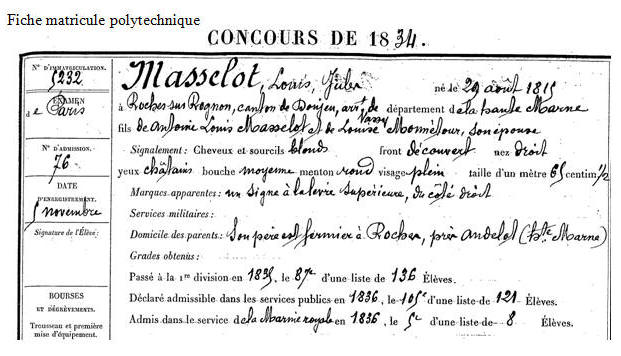 Fiche matricule polytechnique
CONCOURS DE 1834.
N° D'IMMATRICULATION.
5232
EXAMEN
de Paris
N° D'ADMISSION.
76
DATE
D'ENREGISTREMENT.
5 novembre
Signature de l'Élève:
BOURSES
ET DÉGRÈVEMENTS.
Trousseau et première
mise d'équipement.
Masselot, Louis, Jules né le 29 août 1815
à Roches sur Rognon, canton de Donjeu, arrt de Vassy département de la haute Marne
fils de Antoine Louis Masselot et de Louise Monnétour, son épouse
Signalement: Cheveux et sourcils blonds front découvert nez droit
yeux châtains bouche moyenne menton rond visage plein taille d'un mètre 65 centim 1/2
Marques apparentes: un signe à la levre supérieure, du côté droit
Services militaires:
Domicile des parents: Son père est fermier à Roches, près Andelot (hte Marne)
Grades obtenus:
Passé à la 1re division en 1835, le 87e d'une liste de 136 Élèves.
Déclaré admissible dans les services publics en 1836, le 105e d'une liste de 121 Élèves.
Admis dans le service de la Marine royale en 1836, le 5e d'une liste de 8 Élèves.